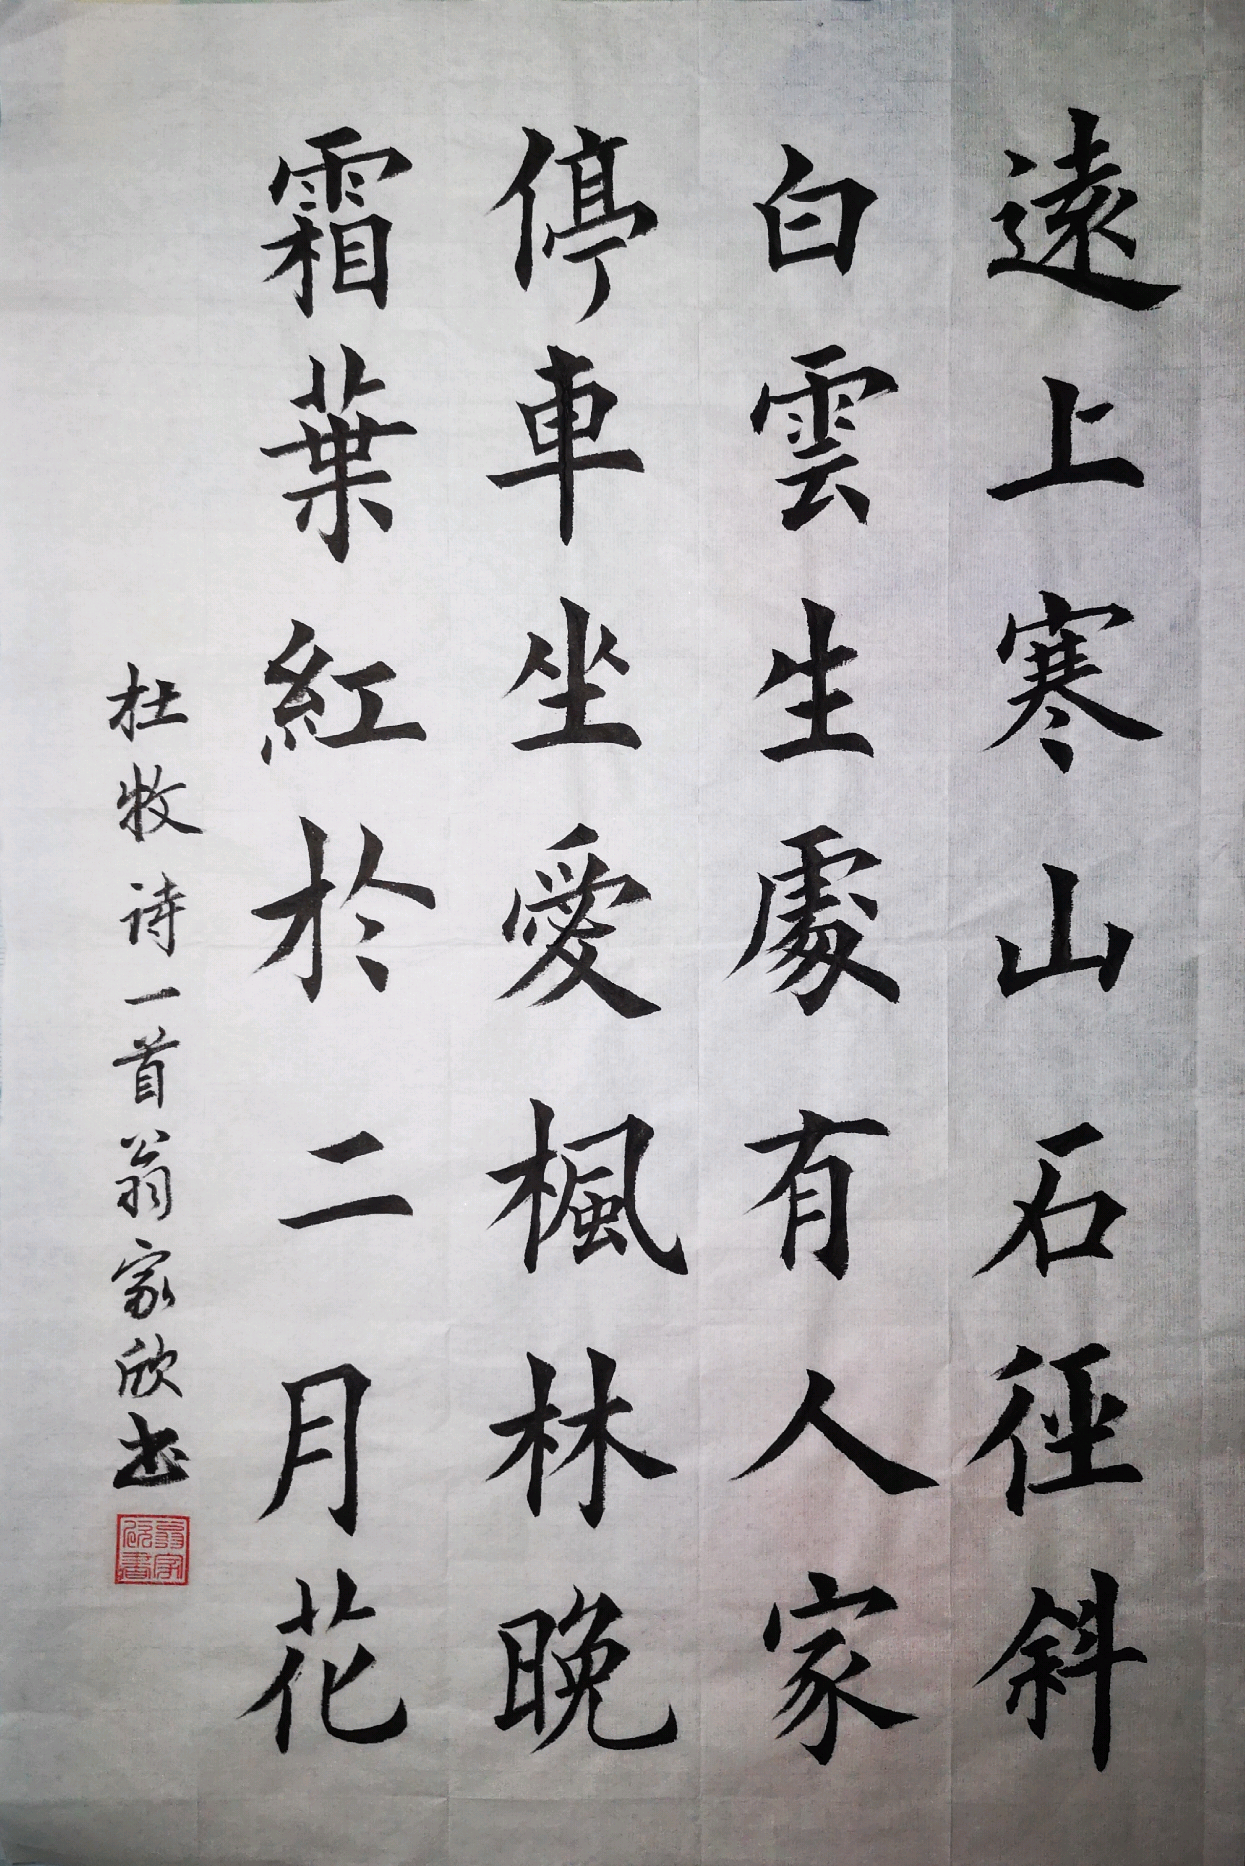 遠上寒山石徑斜
白雲生處有人家
停車坐愛楓林晚
霜葉紅於二月花
杜牧诗一首翁家欣书
翁家欣書